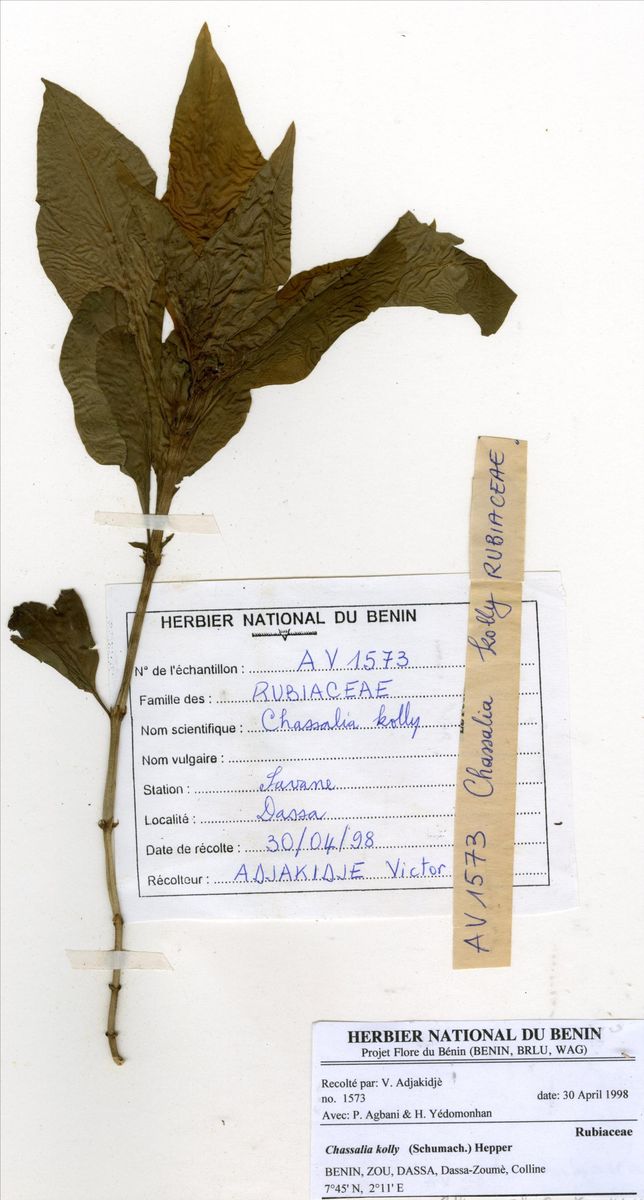 HERBIER NATIONAL DU BENIN
N° de l'échantillon : AV 1573
Famille des : RUBIACEAE
Nom scientifique : Chassalia kolly
Nom vulgaire :
Station : Savane
Localité : Dassa
Date de récolte : 30/04/98
Récolteur : ADJAKIDJE Victor
AV 1573 Chassalia kolly RUBIACEAE
HERBIER NATIONAL DU BENIN
Projet Flore du Bénin (BENIN, BRLU, WAG)
Recolté par: V. Adjakidjè
no. 1573 date: 30 April 1998
Avec: P. Agbani & H. Yédomonhan
Rubiaceae
Chassalia kolly (Schumach.) Hepper
BENIN, ZOU, DASSA, Dassa-Zoumè, Colline
7°45' N, 2°11' E